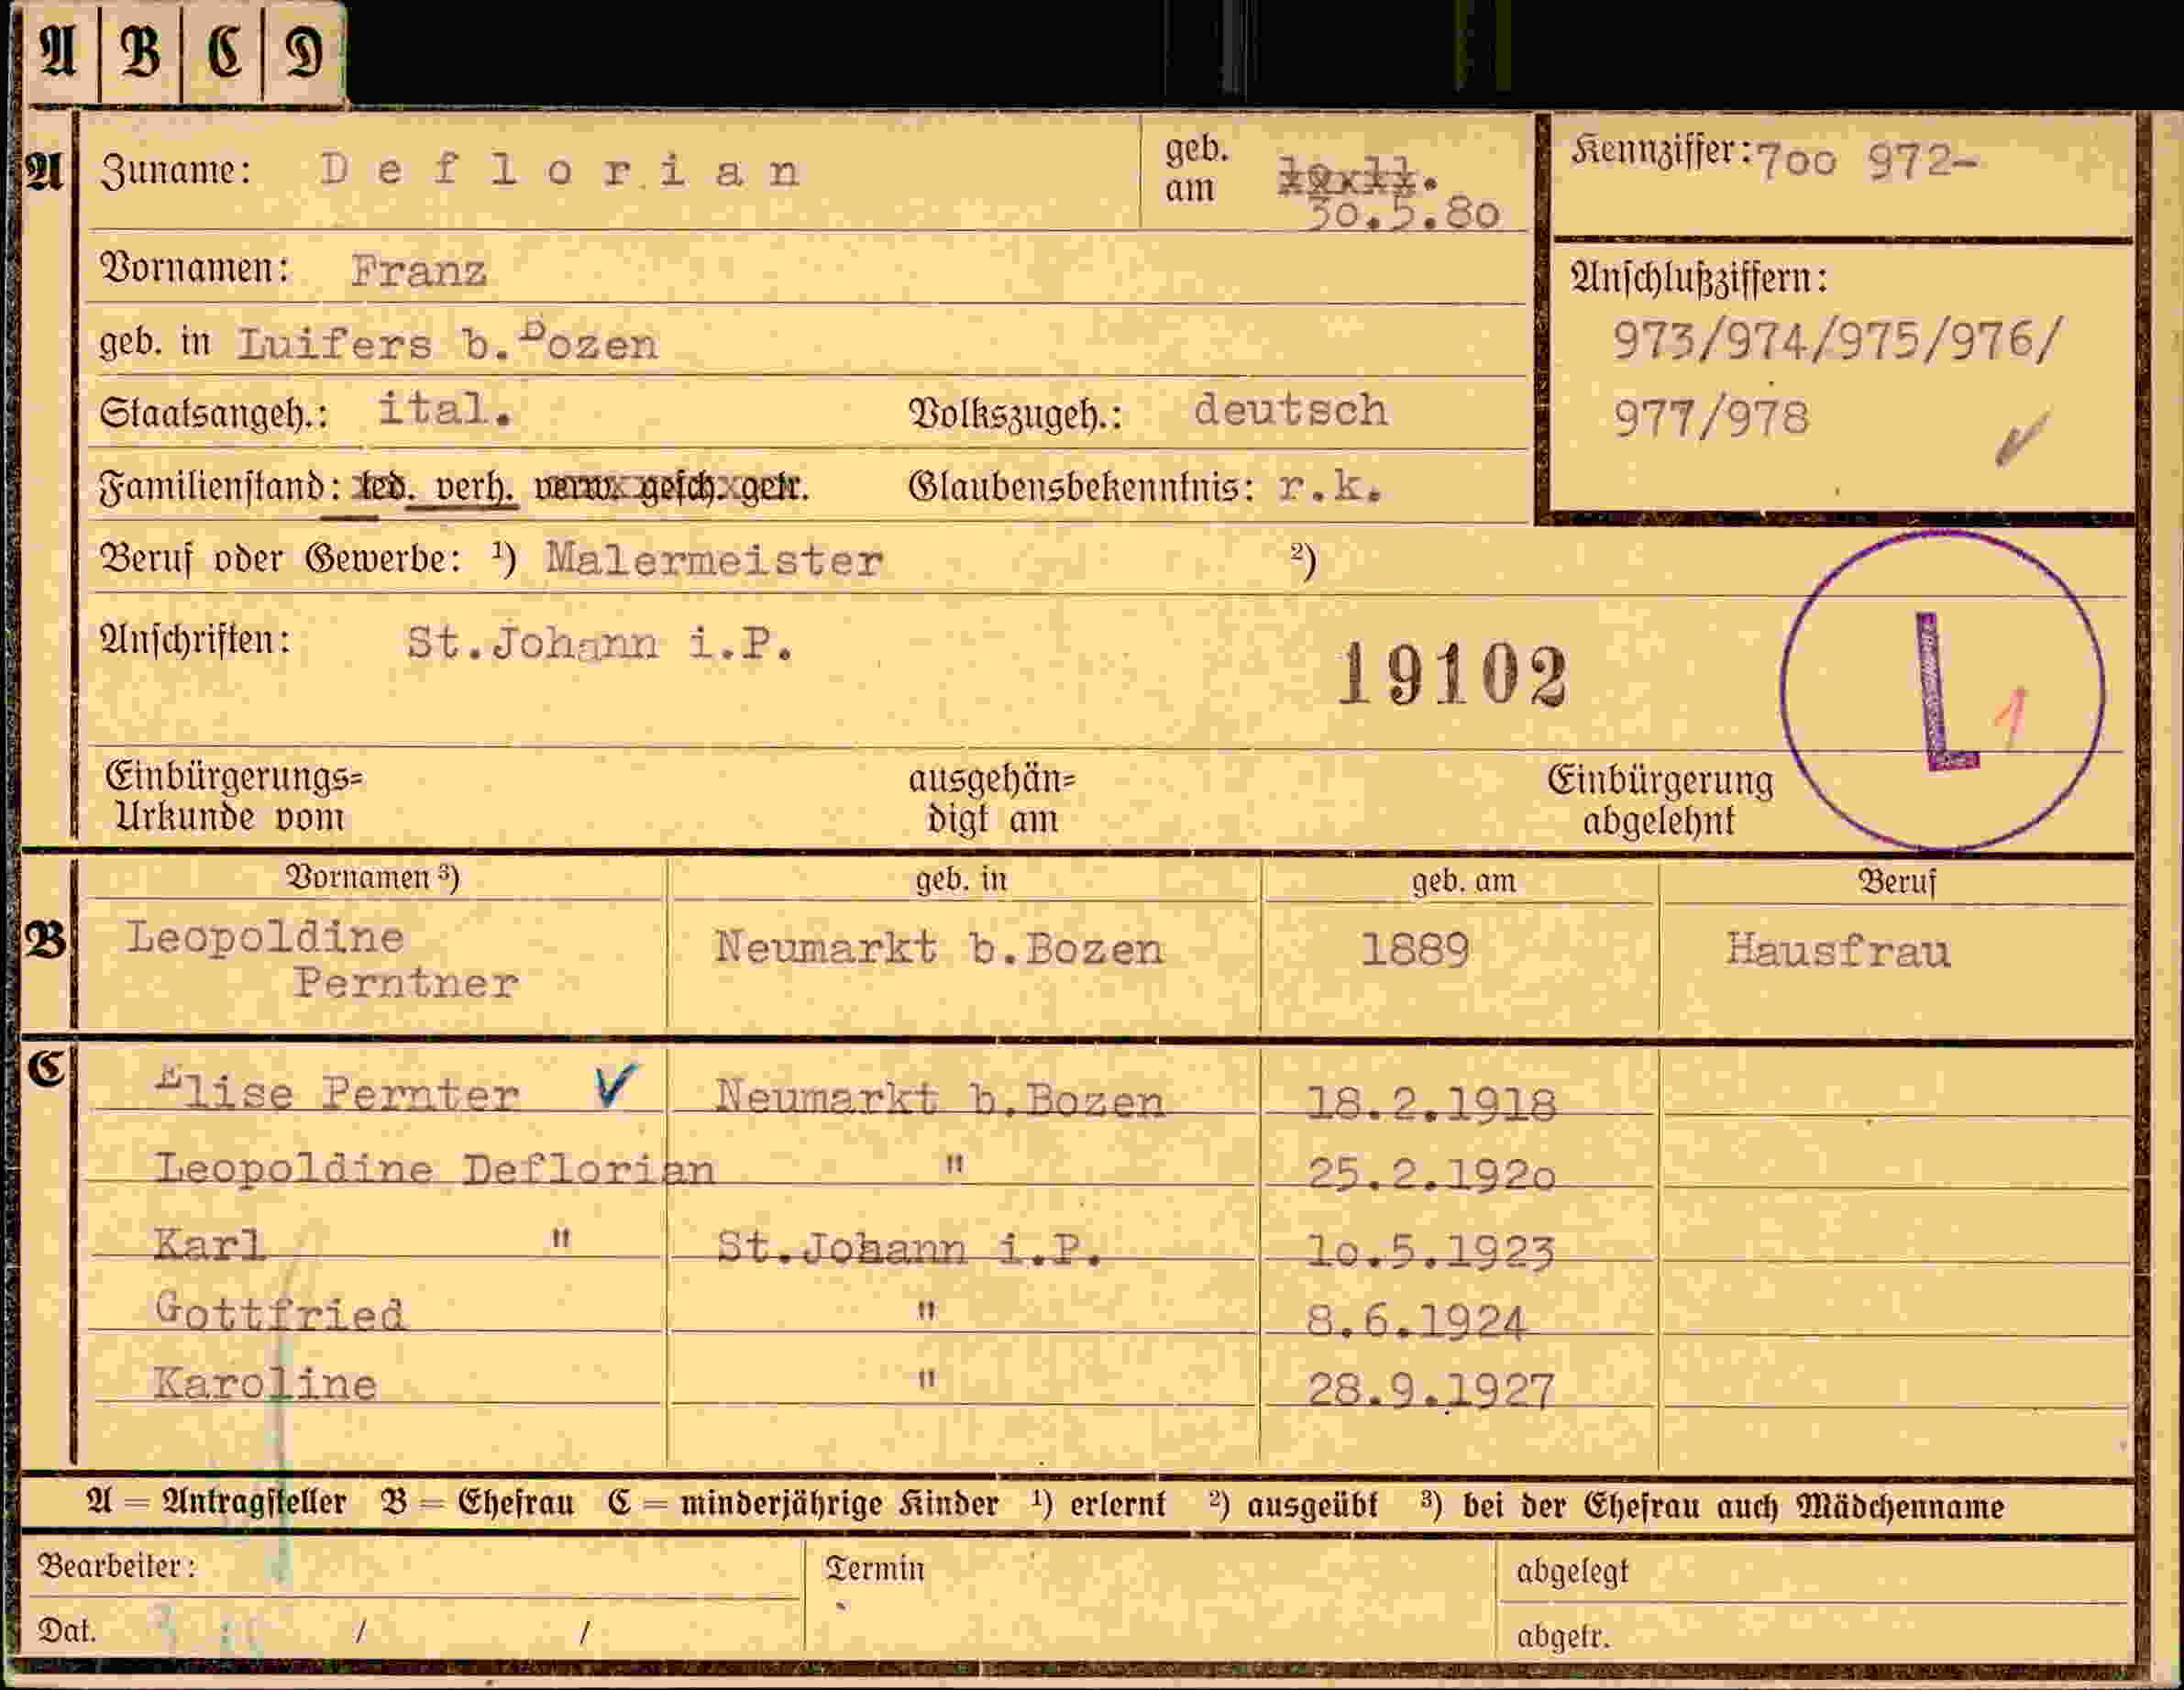 A B C D
A Zuname: Deflorian geb. am
30.5.80
Kennziffer: 700 972-
Vornamen: Franz
Anschlußziffern:
geb. in Luifers b. Bozen
973/974/975/976/
Staatsangeh.: ital. Volkszugeh.: deutsch
977/978
Familienstand: led. verh. verw. gesch. getr. Glaubensbekenntnis: r.k.
Beruf oder Gewerbe: ¹) Malermeister ²)
Anschriften: St.Johann i.P.
19102
L 1
Einbürgerungs= Urkunde vom
ausgehän= digt am
Einbürgerung abgelehnt
Vornamen ³) geb. in geb. am Beruf
B Leopoldine Neumarkt b.Bozen 1889 Hausfrau
Perntner
C Elise Pernter Neumarkt b.Bozen 18.2.1918
Leopoldine Deflorian " 25.2.1920
Karl " St.Johann i.P. 10.5.1923
Gottfried " 8.6.1924
Karoline " 28.9.1927
A = Antragsteller B = Ehefrau C = minderjährige Kinder ¹) erlernt ²) ausgeübt ³) bei der Ehefrau auch Mädchenname
Bearbeiter: Termin abgelegt
Dat. / / abgetr.